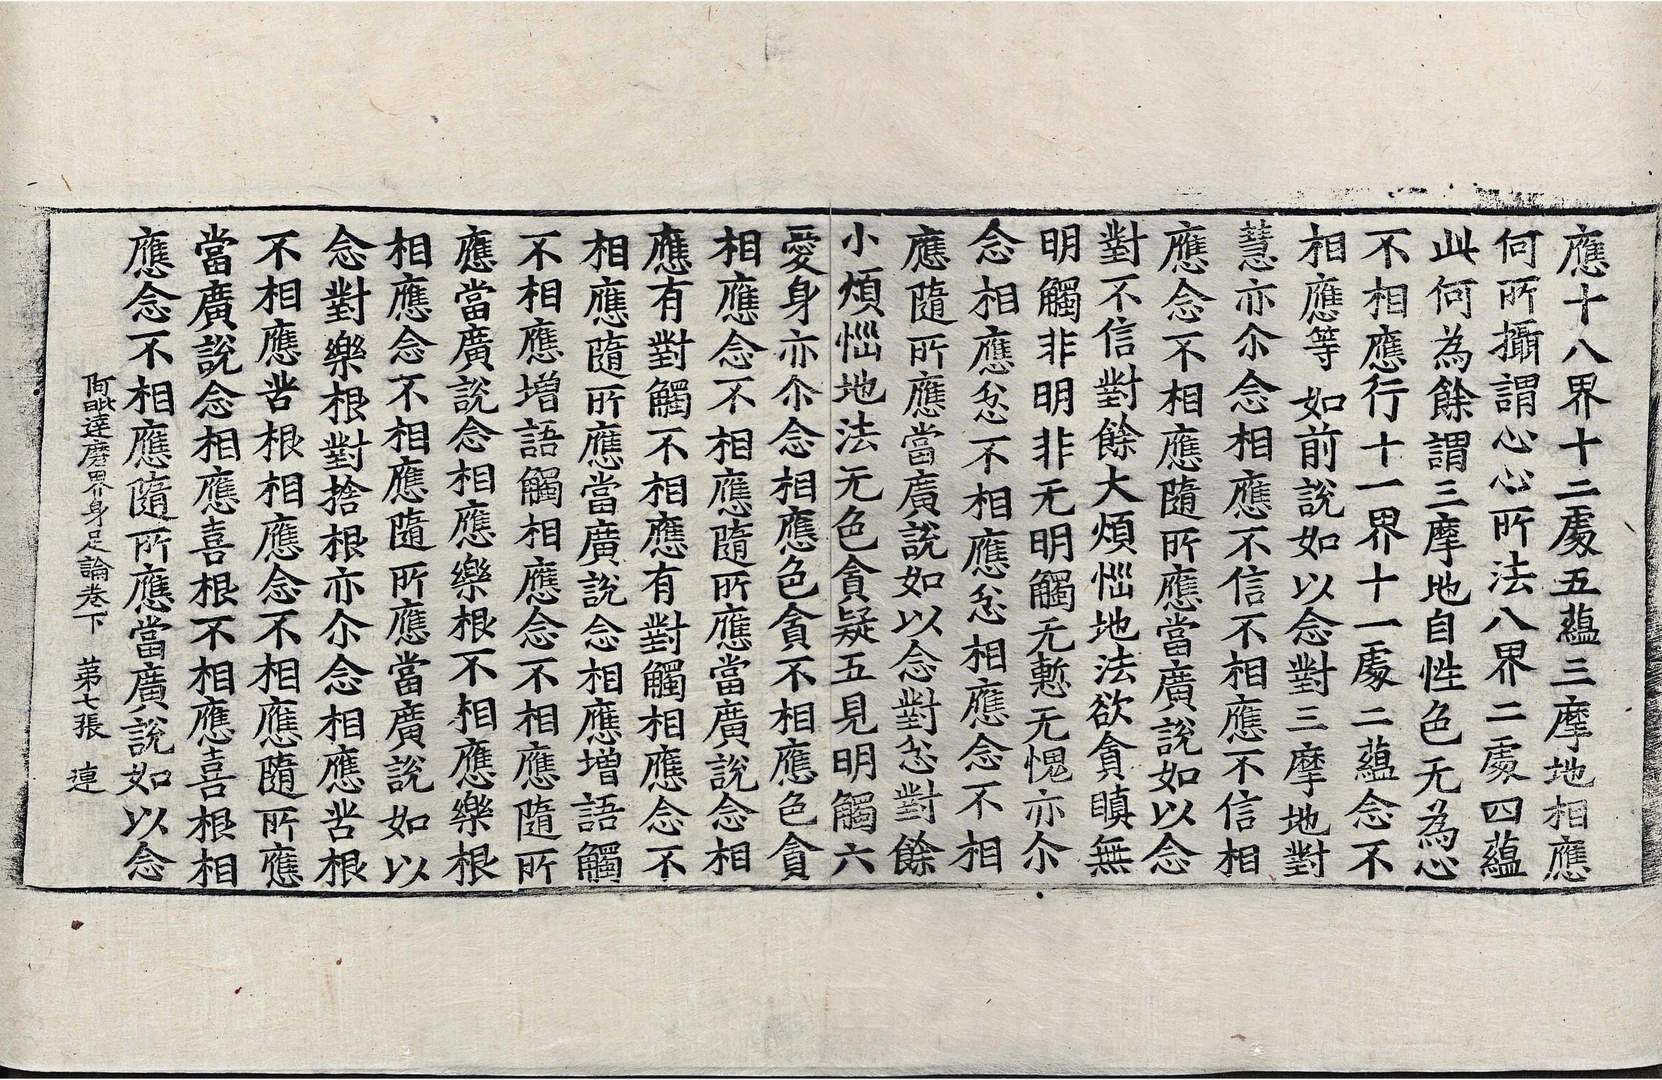 應十八界十二處五蘊三摩地相應
何所攝謂心心所法八界二處四蘊
此何為餘謂三摩地自性色无為心
不相應行十一界十一處二蘊念不
相應等如前說如以念對三摩地對
慧亦尒念相應不信不相應不信相
應念不相應隨所應當廣說如以念
對不信對餘大煩惱地法欲貪瞋無
明觸非明非无明觸无慙无愧亦尒
念相應忿不相應忿相應念不相
應隨所應當廣說如以念對忿對餘
小煩惱地法无色貪疑五見明觸六
愛身亦尒念相應色貪不相應色貪
相應念不相應隨所應當廣說念相
應有對觸不相應有對觸相應念不
相應隨所應當廣說念相應增語觸
不相應增語觸相應念不相應隨所
應當廣說念相應樂根不相應樂根
相應念不相應隨所應當廣說如以
念對樂根對捨根亦尒念相應苦根
不相應苦根相應念不相應隨所應
當廣說念相應喜根不相應喜根相
應念不相應隨所應當廣說如以念
阿毗達磨界身足論卷下 第七張 連